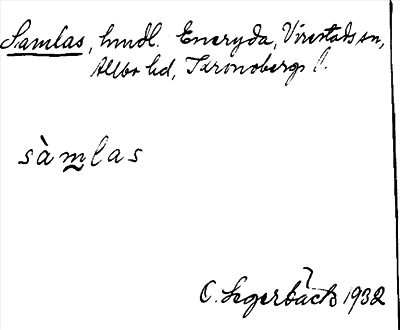 Samlas, hmdl. Eneryda, Virestads sn,
Allbo hd, Kronobergs l.
sàm̰las
C. Segerbäck 1932